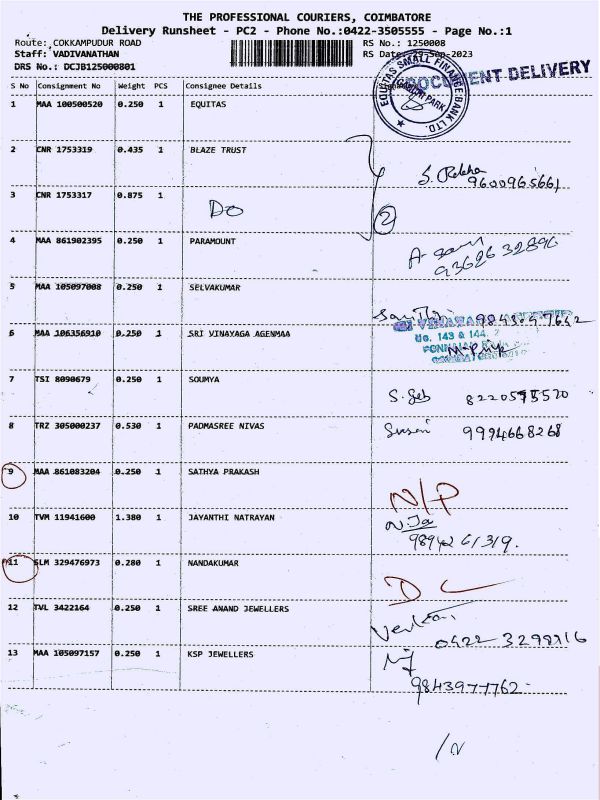 THE PROFESSIONAL COURIERS, COIMBATORE
Delivery Runsheet - PC2 - Phone No.:0422-3505555 - Page No.:1
Route: COKKAMPUDUR ROAD RS No.: 1250008
Staff: VADIVANATHAN RS Date: 29-Sep-2023
DRS No.: DCJB125000801
DOCUMENT DELIVERY
EQUITAS SMALL FINANCE BANK LTD.
PARK
S No Consignment No Weight PCS Consignee Details
1 MAA 100500520 0.250 1 EQUITAS
2 CNR 1753319 0.435 1 BLAZE TRUST
S. Rekha
9600965661
3 CNR 1753317 0.875 1
Do
2
4 MAA 861902395 0.250 1 PARAMOUNT
9362632896
5 MAA 105097008 0.250 1 SELVAKUMAR
6 MAA 106356910 0.250 1 SRI VINAYAGA AGENMAA
No. 143 & 144
7 TSI 8090679 0.250 1 SOUMYA
8 TRZ 305000237 0.530 1 PADMASREE NIVAS
9994668268
9 MAA 861083204 0.250 1 SATHYA PRAKASH
N/P
10 TVM 11941600 1.380 1 JAYANTHI NATRAYAN
11 SLM 329476973 0.280 1 NANDAKUMAR
D C
12 TVL 3422164 0.250 1 SREE ANAND JEWELLERS
13 MAA 105097157 0.250 1 KSP JEWELLERS
9843977762